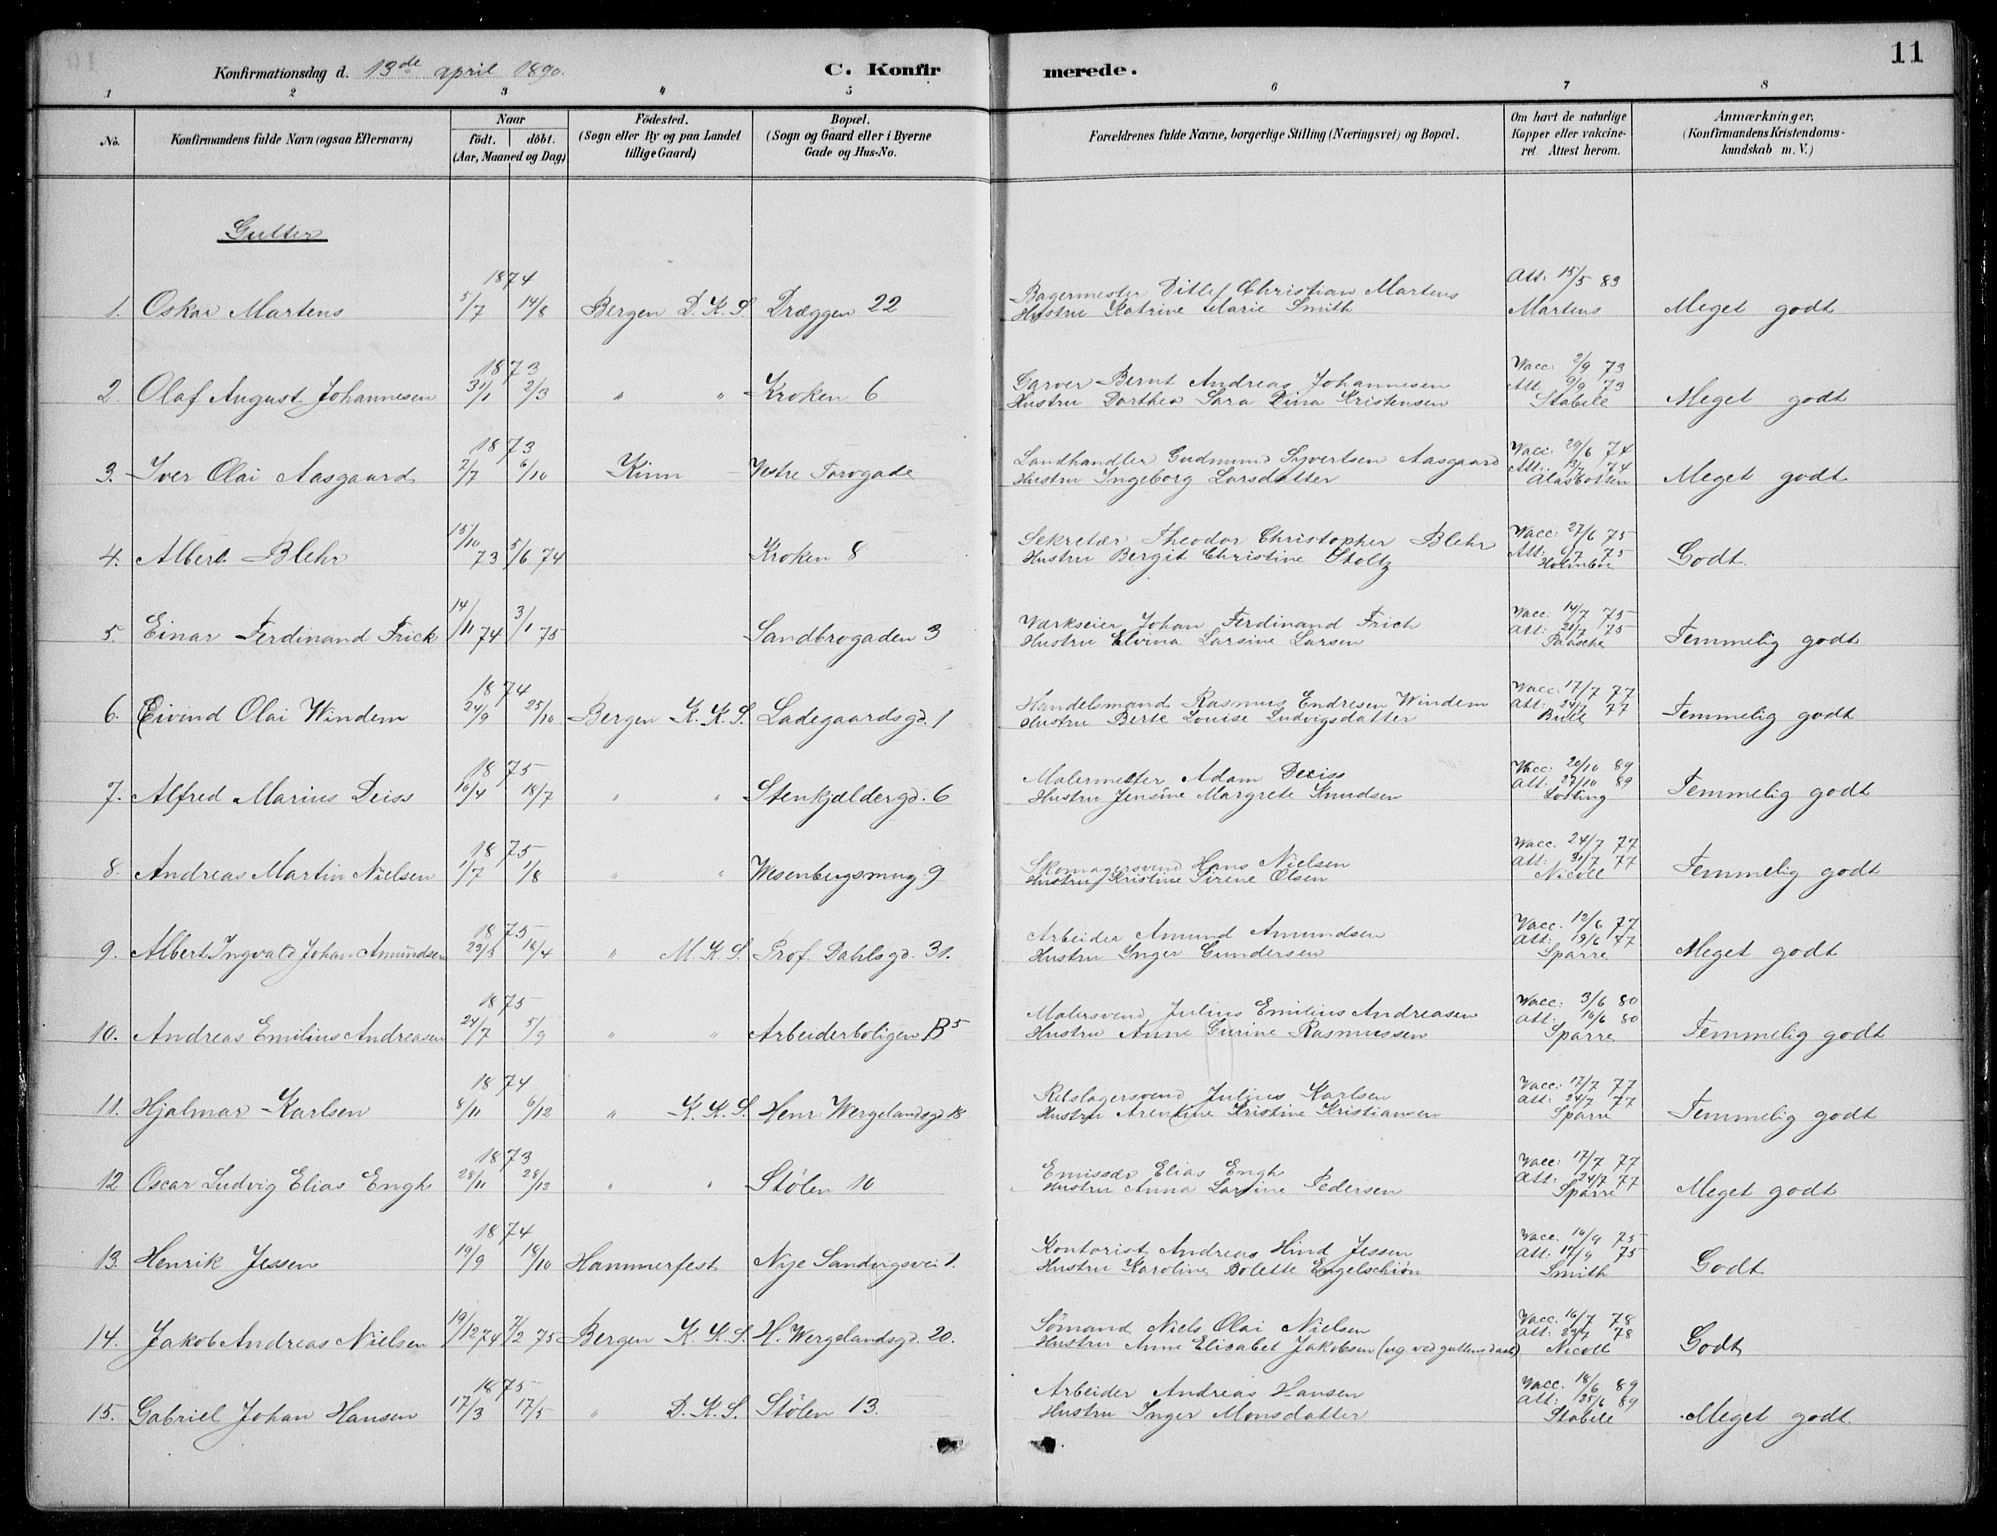 Konfirmationsdag d. 13de april 1890.
C. Konfirmerede.
11
1 2 3 4 5 6 7 8
No. Konfirmandens fulde Navn (ogsaa Efternavn)
Naar
födt. döbt.
(Aar, Maaned og Dag)
Födested.
(Sogn eller By og paa Landet
tillige Gaard)
Bopæl.
(Sogn og Gaard eller i Byerne
Gade og Hus-No.
Forældrenes fulde Navne, borgerlige Stilling (Næringsvei) og Bopæl.
Om havt de naturlige
Kopper eller vakcine-
ret. Attest herom.
Anmærkninger,
(Konfirmandens Kristendoms-
kundskab m. V.)
Gutter
1874
1. Oskar Martens 5/7 14/8 Bergen D. K. S. Dræggen 22
Bagermester Ditlef Christian Martens
Hustru Katrine Marie Smith
Att: 15/5 89
Martens
Meget godt
1873
2. Olaf August Johannesen 31/1 2/3 " " Kroken 6
Garver Bernt Andreas Johannesen
Hustru Dorthea Sara Dina Kristensen
Vacc: 2/9 73
Att: 9/9 73
Stabell
Meget godt
1873
3. Iver Olai Aasgaard 2/7 6/10 Kinn Vestre Torvgade
Landhandler Gudmund Syvertsen Aasgaard
Hustru Ingeborg Larsdatter
Vacc: 29/6 74
Att: 74
Meget godt
4. Albert Blehr 15/10 73 5/6 74 Kroken 8
Sekretær Theodor Christopher Blehr
Hustru Bergit Christine Stoltz
Vacc: 27/6 75
Att: 6/7 75
Holmboe
Godt.
5. Einar Ferdinand Frick 14/11 74 3/1 75 Sandbrogaden 3
Værkseier Johan Ferdinand Frich
Hustru Elvina Larsine Larsen
Vacc: 14/7 75
Att: 21/7 75
Paasche
Temmelig godt
1874
6. Eivind Olai Windem 24/9 25/10 Bergen K. K. S. Ladegaardsgd. 1
Handelsmand Rasmus Endresen Windem
Hustru Berte Louise Ludvigsdatter
Vacc: 17/7 77
Att: 24/7 77
Bull
Temmelig godt
1875
7. Alfred Marius Deiss 10/4 18/7 " " Stenkjældergd. 6
Malermester Adam Deiss
Hustru Jensine Margrete Knudsen
Vacc: 20/10 89
Att: 27/10 89
Losting
Temmelig godt
1875
8. Andreas Martin Nielsen 1/7 1/8 " " Wesenbergsmug 9
Skomagersvend Hans Nielsen
Hustru Kristine Sirene Olsen
Vacc. 24/7 77
Att: 31/7 77
Nicoll
Temmelig godt
1875
9. Albert Ingvald Johan Amundsen 23/3 18/4 " M. K. S. Prof. Dahlsgd. 31.
Arbeider Amund Amundsen
Hustru Inger Gundersen
Vacc: 12/6 77
Att: 19/6 77
Sparre
Meget godt
1875
10. Andreas Emilius Andreasen 24/7 5/9 " " Arbeiderboligen B5
Malersvend Julius Emilius Andreasen
Hustru Anne Gurine Rasmussen
Vacc: 3/6 80
Att: 10/6 80
Sparre
Temmelig godt
1874
11. Hjalmar Karlsen 8/11 6/12 " K. K. S. Henr. Wergelandsgd. 18
Rebslagersvend Julius Karlsen
Hustru Arentine Kristine Kristiansen
Vacc: 17/7 77
Att: 24/7 77
Sparre
Temmelig godt
1873
12 Oscar Ludvig Elias Engh 28/11 28/12 " " Stølen 10
Emissær Elias Engh
Hustru Anna Larsine Pedersen
Vacc: 17/7 77
Att: 24/7 77
Sparre
Meget godt
1874
13. Henrik Jessen 19/9 18/10 Hammerfest Nye Sandvigsvei 1.
Kontorist Andreas Hind Jessen
Hustru Karoline Bolette Engelschiøn
Vacc: 10/9 75
Att: 17/9 75
Smith
Godt
14. Jakob Andreas Nielsen 19/12 74 7/2 75 Bergen K. K. S. H. Wergelandsgd. 20.
Sømand Niels Olai Nielsen
Hustru Anne Elisabet Jakobsen (ug ved guttens daab)
Vacc: 16/7 78
Att: 23/7 78
Nicoll
Godt
1875
15. Gabriel Johan Hansen 17/3 17/5 " D. K. S. Stølen 13.
Arbeider Andreas Hansen
Hustru Inger Monsdatter
Vacc. 18/6 89
Att: 25/6 89
Stabell
Meget godt.